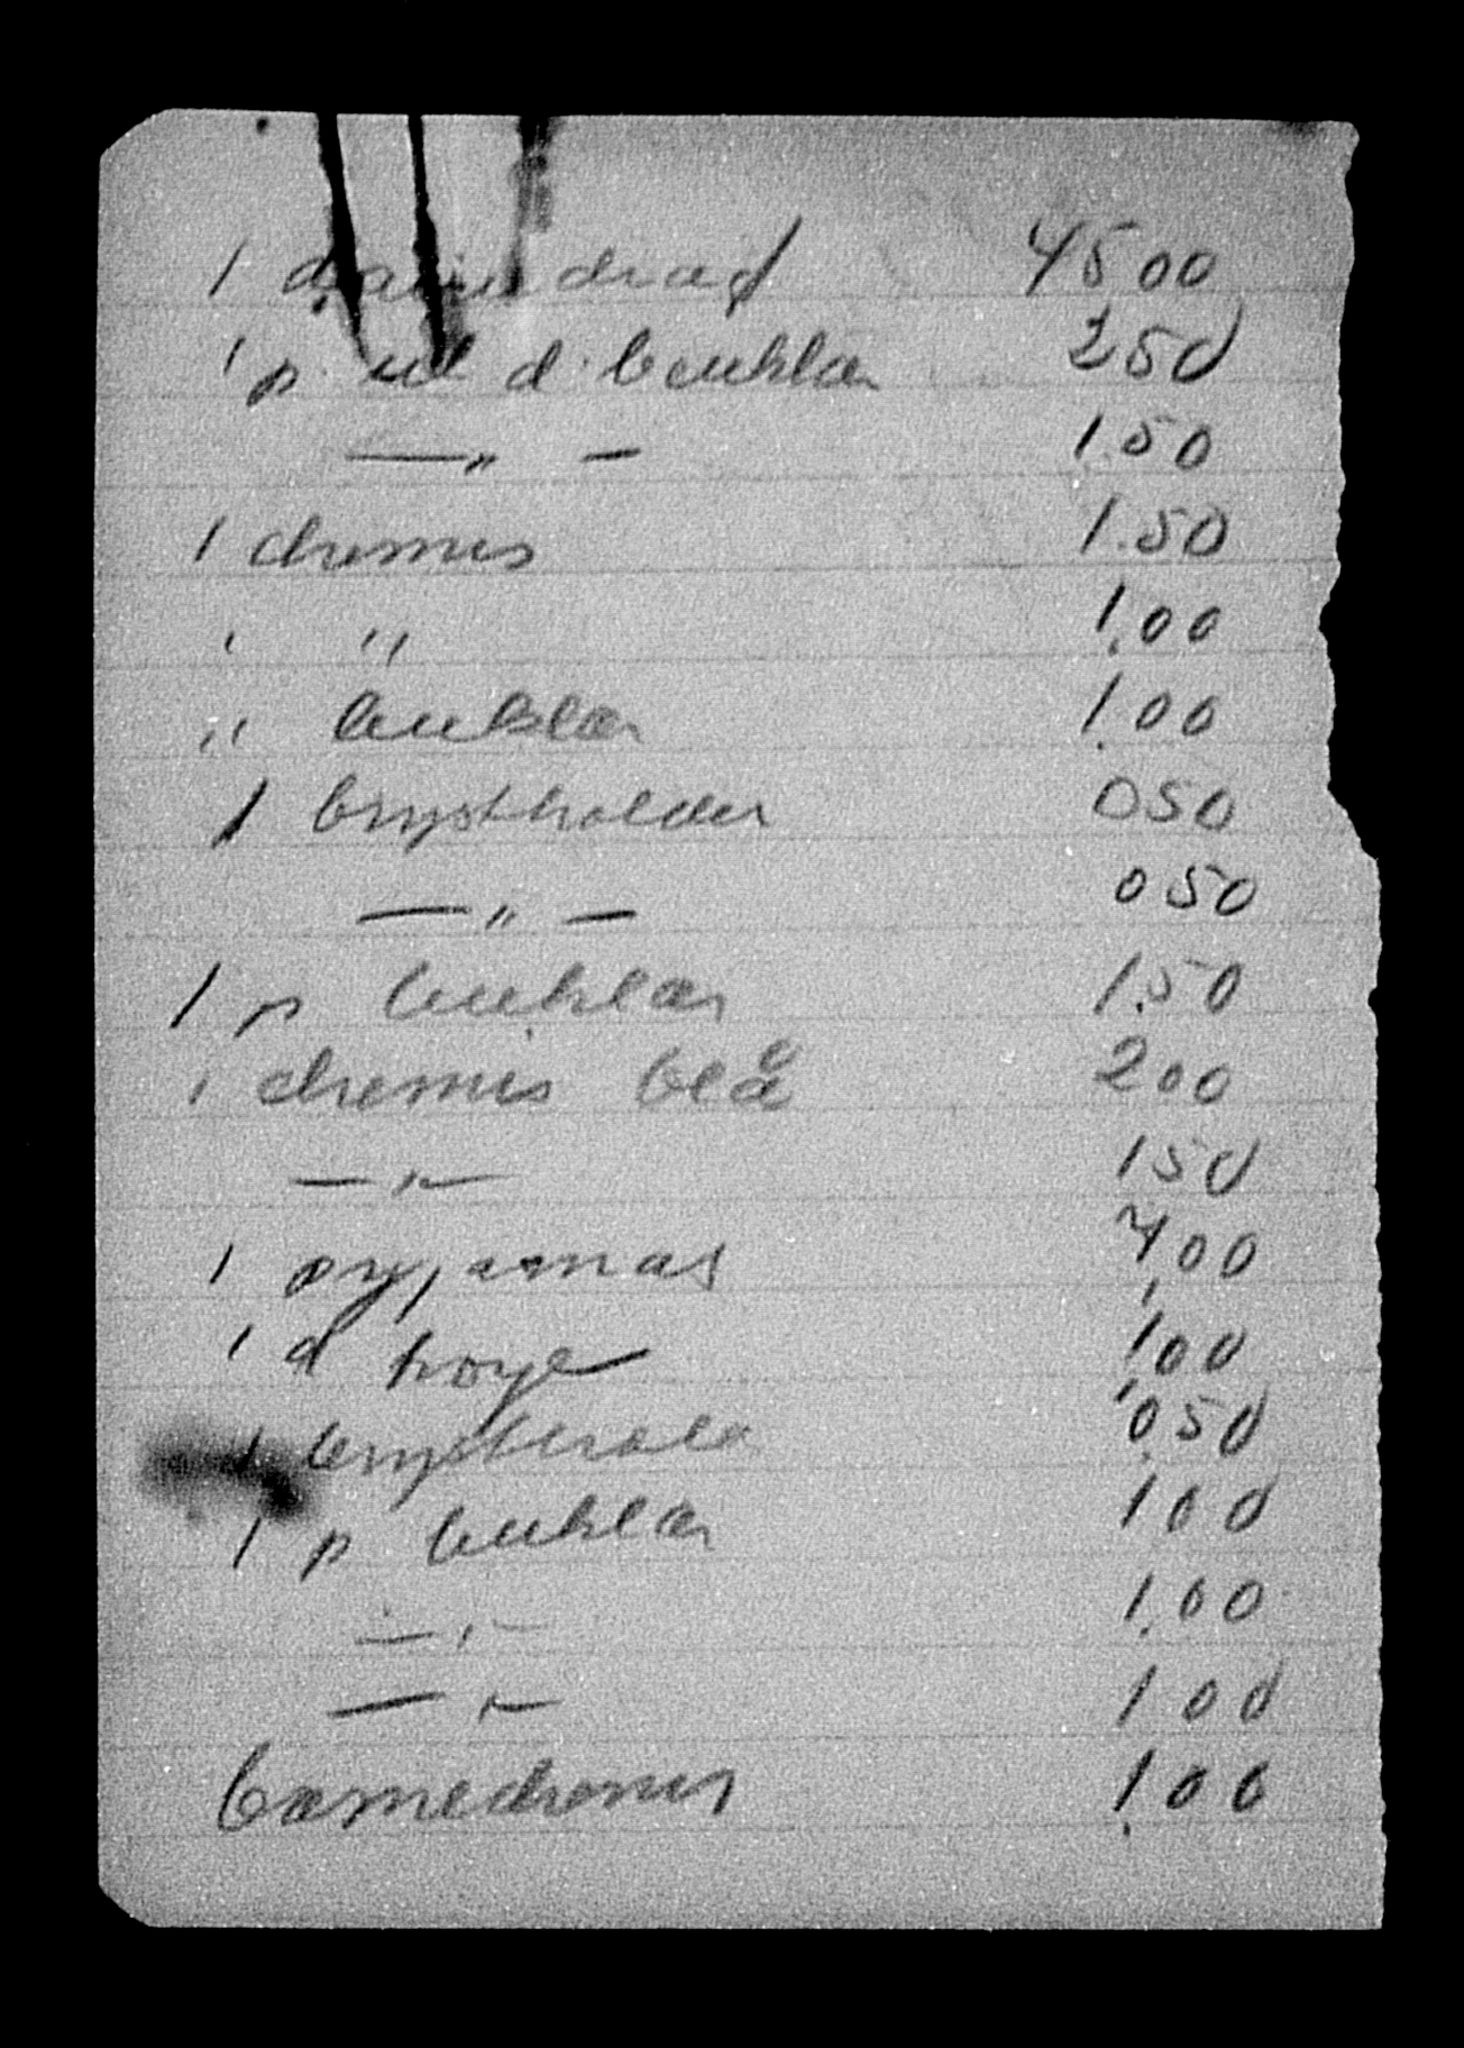 1 damedragt 45 00
1 p ul d. benklær 2 50
—„— 1.50
1 chemis 1.50
" " 1.00
" benklær 1.00
1 brystholder 0 50
—„— 0 50
1 p benklær 1.50
1 chemis blå 2 00
—„— 1 50
1 pyjamas 4 00
1 d trøye 1 00
1 brysthold 0.50
1 p benklær 1 00
—„— 1.00
—„— 1 00
barnechemis 1.00